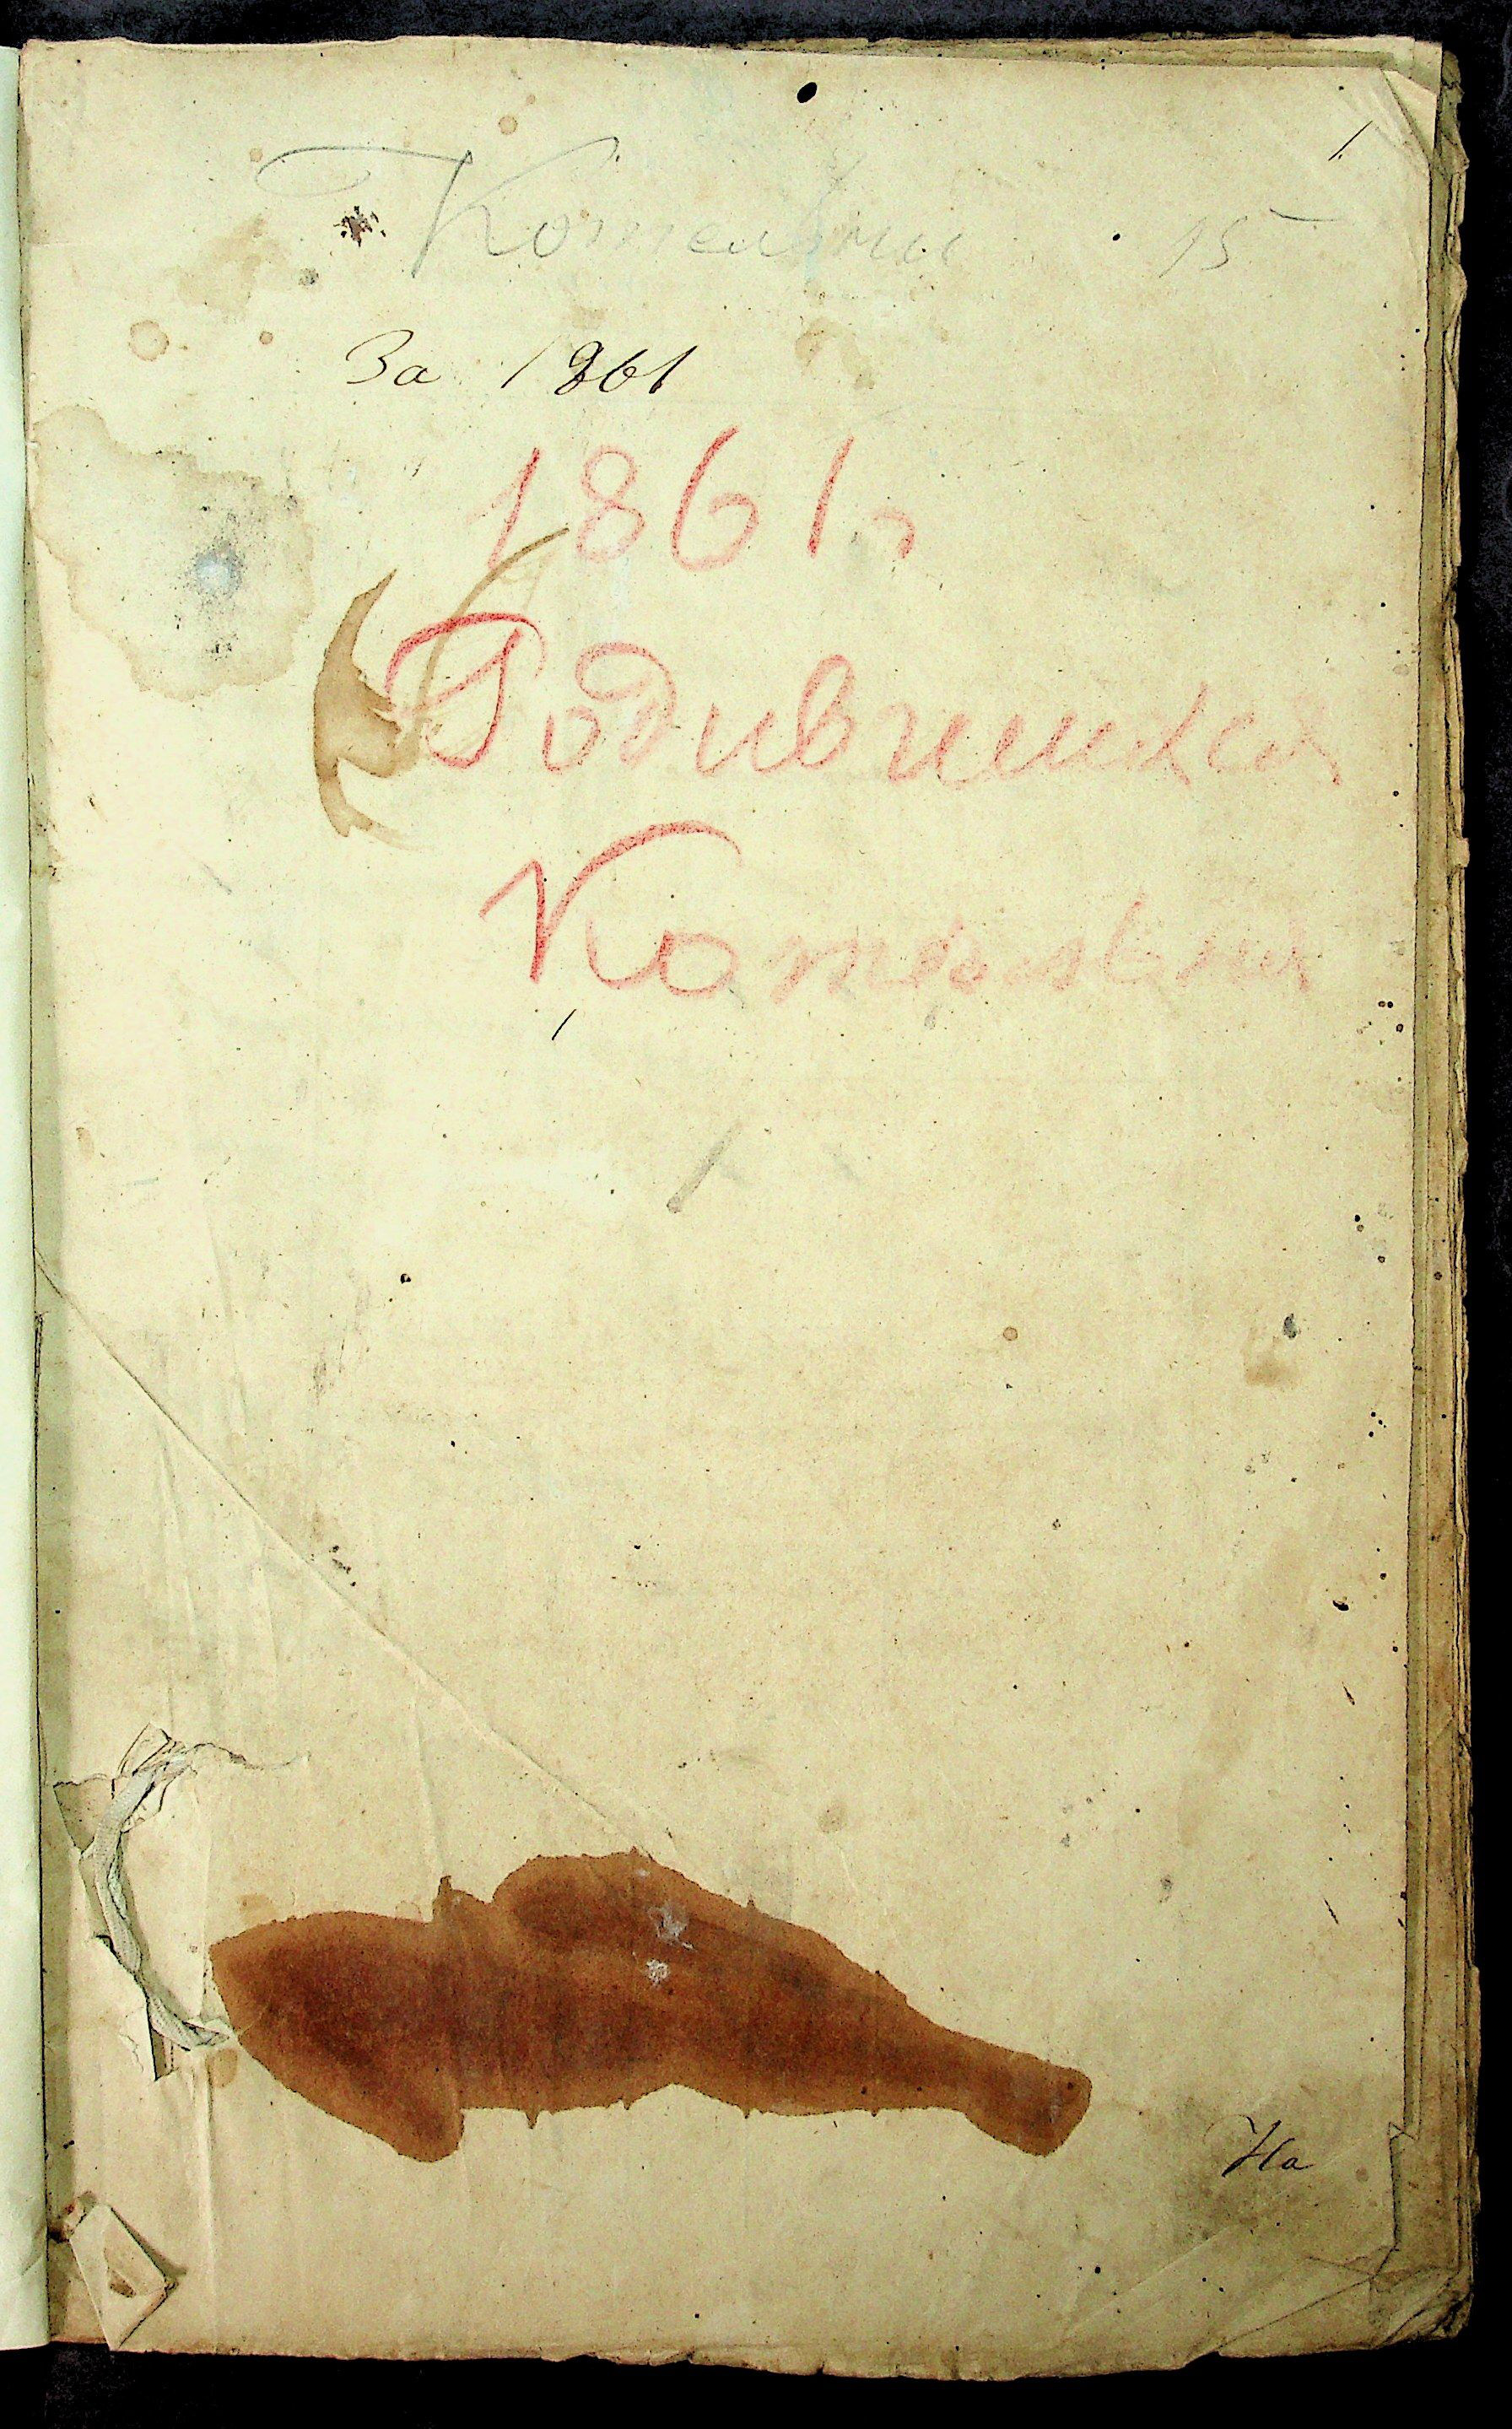 1
Котельни 15
За 1861
1861 г
Родившихся
Котельня
На